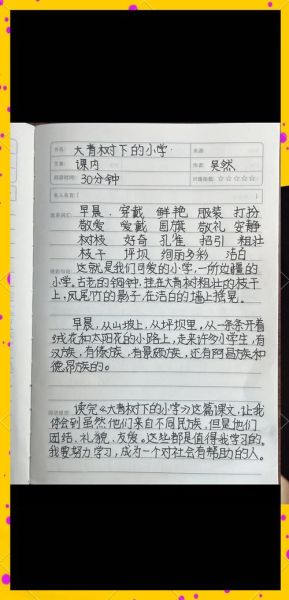 书名: 大青树下的小学
文章: 课内 作者: 吴然
阅读时间: 30分钟 兴趣指数: ☆☆☆☆☆
早晨 穿戴 鲜艳 服装 打扮
敬爱 爱戴 国旗 敬礼 安静
树枝 好奇 孔雀 招引 粗壮
枝干 坪坝 绚丽多彩 洁白
这就是我们可爱的小学,一所边疆的
小学。古老的铜钟,挂在大青树粗壮的枝干
上,凤尾竹的影子,在洁白的墙上摇晃。
早晨,从山坡上,从坪坝里,从一条条开着
绒花和太阳花的小路上,走来许多小学生,有
汉族,有傣族,有景颇族,还有阿昌族和
德昂族的。
读完《大青树下的小学》这篇课文,让我
体会到虽然他们来自不同民族,但是他们
团结、礼貌、友爱。这些都是值得我学习的。
我要努力学习,成为一个对社会有帮助的人。